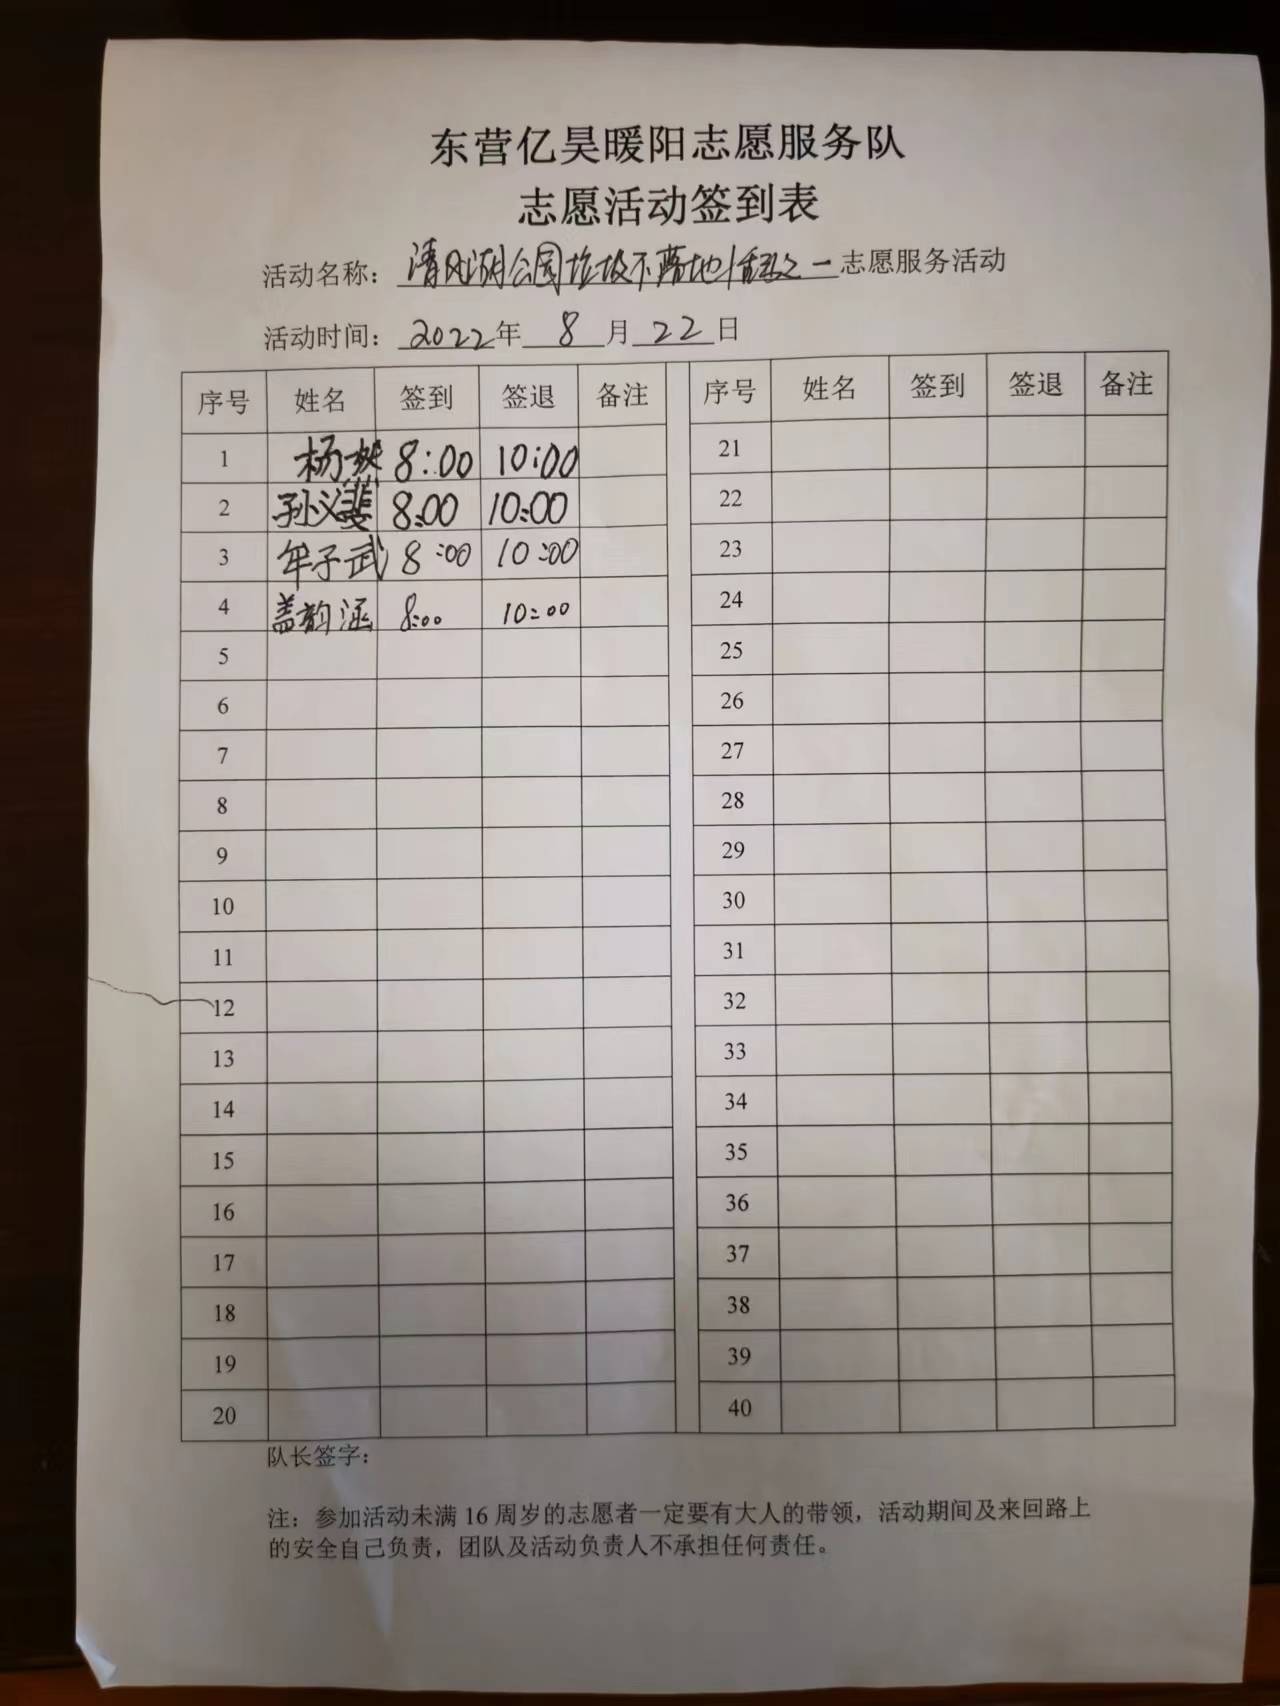 东营亿昊暖阳志愿服务队
志愿活动签到表
活动名称：清风湖公园垃圾不落地 之一 志愿服务活动
活动时间：2022年 8 月 22 日
序号 姓名 签到 签退 备注 序号 姓名 签到 签退 备注
1 杨燃 8:00 10:00 21
2 孙义斐 8:00 10:00 22
3 牟子武 8:00 10:00 23
4 盖韵涵 8:00 10:00 24
5 25
6 26
7 27
8 28
9 29
10 30
11 31
12 32
13 33
14 34
15 35
16 36
17 37
18 38
19 39
20 40
队长签字：
注：参加活动未满 16 周岁的志愿者一定要有大人的带领，活动期间及来回路上
的安全自己负责，团队及活动负责人不承担任何责任。